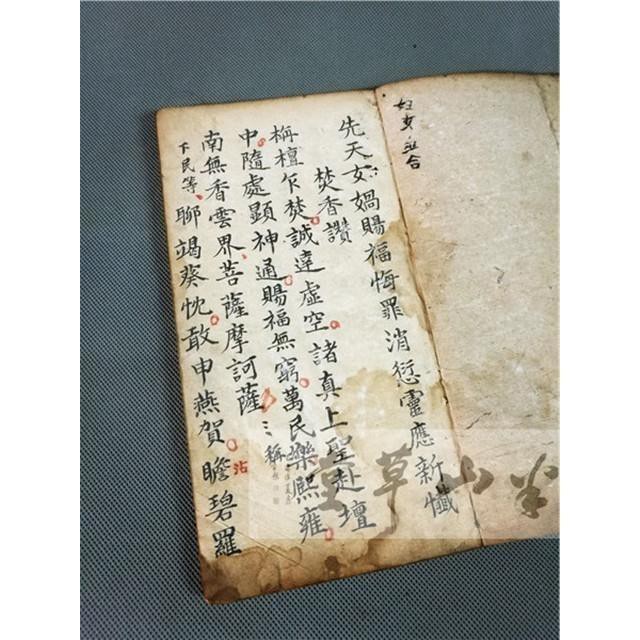 先天女媧賜福悔罪消愆靈應新懺
焚香讚
栴檀乍焚誠達虛空諸真上聖赴壇
中隨處顯神通賜福無窮萬民樂熙雍
南無香雲界菩薩摩訶薩三稱
下民等聊竭葵忱敢申燕賀瞻碧羅
沾
半山草堂